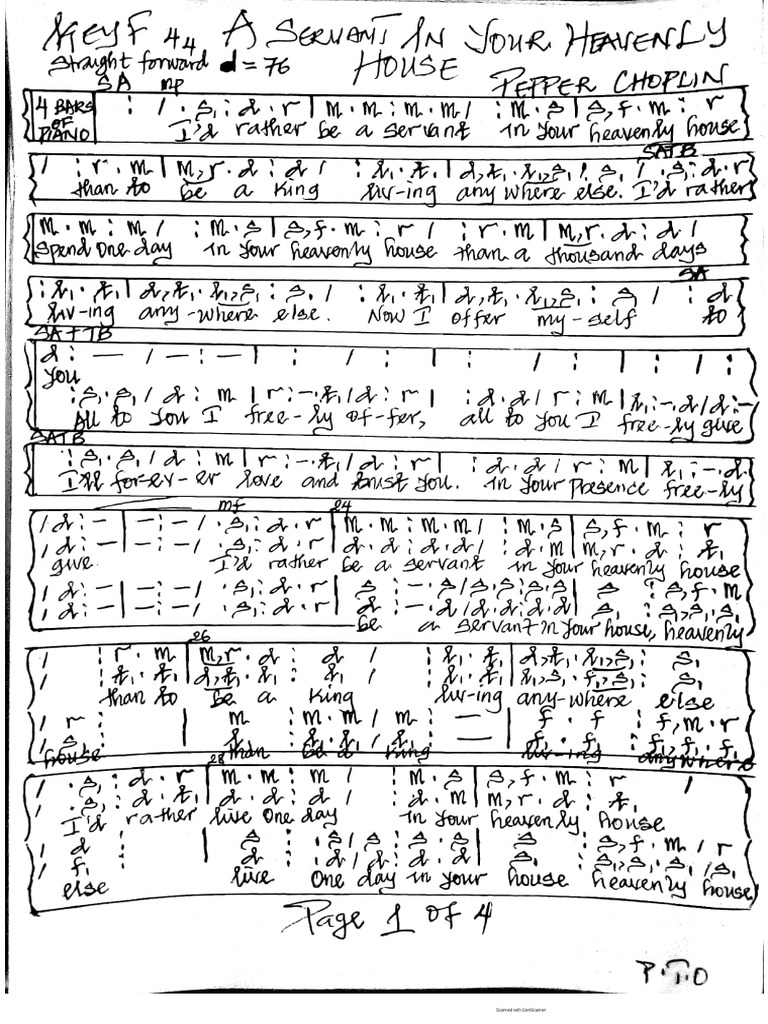 KEY F 4/4 A SERVANT IN YOUR HEAVENLY
Straight forward d = 76 HOUSE PEPPER CHOPLIN
SA mp
4 BARS OF PIANO : / . s₁ : d . r | m . m : m . m / : m . s | s, f . m : r
I'd rather be a servant in your heavenly house
SATB
/ : r . m | m, r . d : d / : l₁ . t₁ | d, t₁ . l₁, s₁ : s₁ / . s₁ : d . r
than to be a King liv-ing anywhere else. I'd rather
m . m : m / : m . s | s, f . m : r / : r . m | m, r . d : d /
spend one day in your heavenly house than a thousand days
SA
: l₁ . t₁ | d, t₁ . l₁, s₁ : s₁ / : l₁ . t₁ | d, t₁ . l₁, s₁ : s₁ / : d
liv-ing any-where else. Now I offer my-self to
SATTB
d : — / — : — | : / : | : / : | : / :
you
: s₁ . s₁ / d : m | r : - . t₁ / d : r | : d . d / r : m | l₁ : - . d / d : -
All to you I free-ly of-fer, all to you I free-ly give
SATB
: s₁ . s₁ / d : m | r : - . t₁ / d : r | : d . d / r : m | l₁ : - . d
I'll for-ev-er love and trust you. in your presence free-ly
mf 24
/ d : - | - : - / . s₁ : d . r | m . m : m . m / : m . s | s, f . m : r
/ d : - | - : - / . s₁ : d . r | d . d : d . d / : d . m | m, r . d : t₁
give I'd rather be a servant in your heavenly house
/ d : - | - : - / . s₁ : d . r | s : - . s / s . s : s . s | s : s, f . m
/ d : - | - : - / . s₁ : d . r | d : - . d / d . d : d . d | s₁ : s₁, s₁ . s₁
be a servant in your house, heavenly
26
/ : r . m | m, r . d : d / : l₁ . t₁ | d, t₁ . l₁, s₁ : s₁
/ : t₁ . t₁ | d, t₁ . l₁ : l₁ / : l₁ . t₁ | l₁, s₁ . f₁, s₁ : s₁
than to be a King liv-ing any-where else
/ r : | m : m . m / m : — | f . f : f, m . r
/ s₁ : | l₁ : l₁ . l₁ / l₁ : — | f₁ . f₁ : f₁, f₁ . f₁
house than be a King liv-ing anywhere
28
/ . s₁ : d . r | m . m : m / : m . s | s, f . m : r /
/ . s₁ : d . t₁ | d . d : d / : d . m | m, r . d : t₁
I'd rather live one day in your heavenly house
/ d : | s : s / s . s : s . s | s : s, f . m / r
/ f₁ : | d : d / d . d : d . d | s₁ : s₁, s₁ . s₁ / s₁
else live One day in your house heavenly house
Page 1 of 4
P.T.O
Scanned with CamScanner